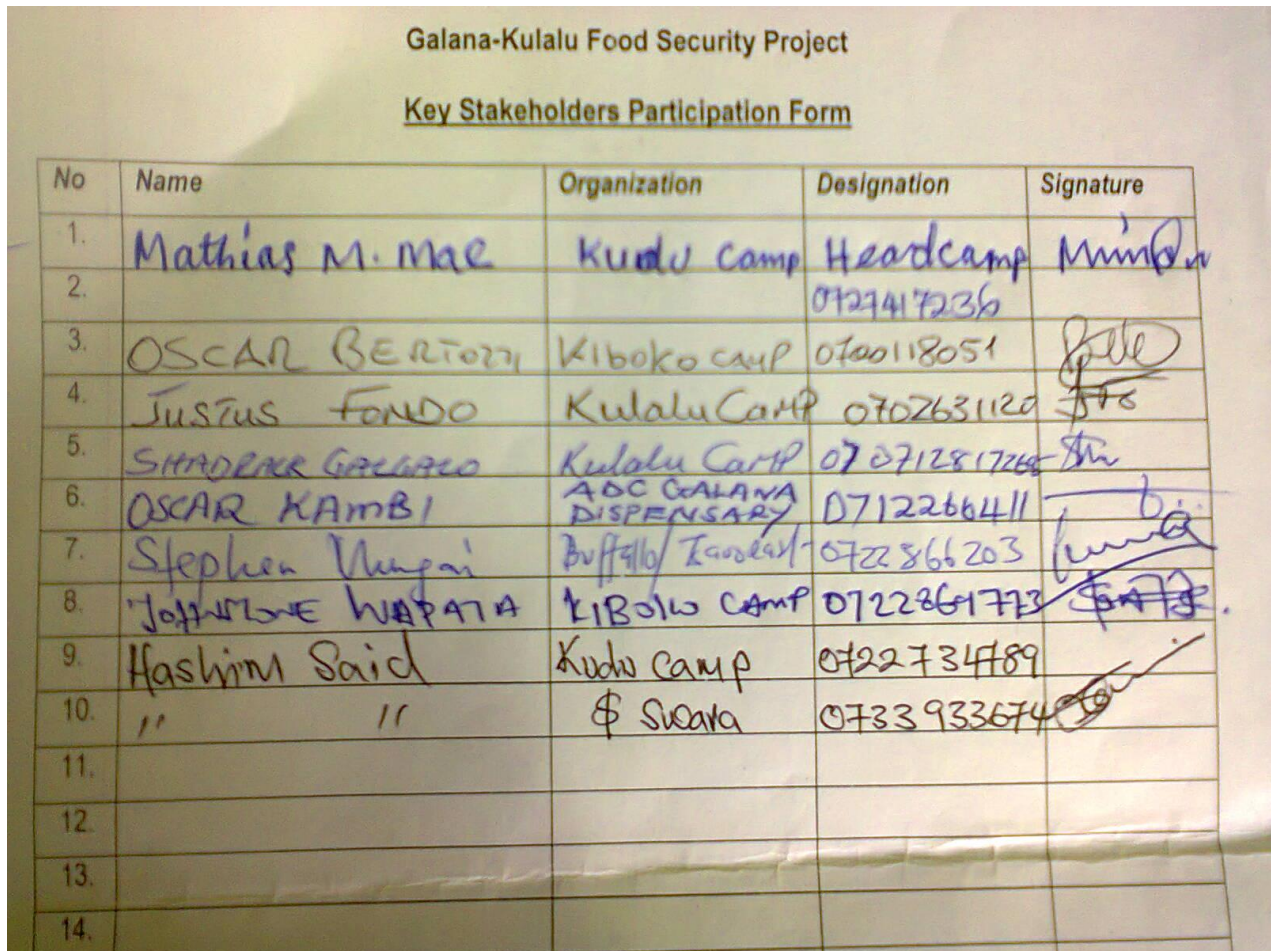 Galana-Kulalu Food Security Project
Key Stakeholders Participation Form
No Name Organization Designation Signature
1. Mathias M. Mae Kudu Camp Headcamp
2. 0727417236
3. OSCAR BERTOZZI KIBOKO CAMP 0700118051
4. JUSTUS FONDO Kulalu CAMP 0702631120
5. SHADRACK GALGALO Kulalu CAMP 07 0712817268
6. OSCAR KAMBI ADC GALANA DISPENSARY 0712266411
7. Stephen Buffallo/ 0722866203
8. JOHNSTONE WAPATA KIBOKO CAMP 0722869773
9. Hashim Said Kudu camp 0722734789
10. " " & Swara 0733933674
11.
12.
13.
14.